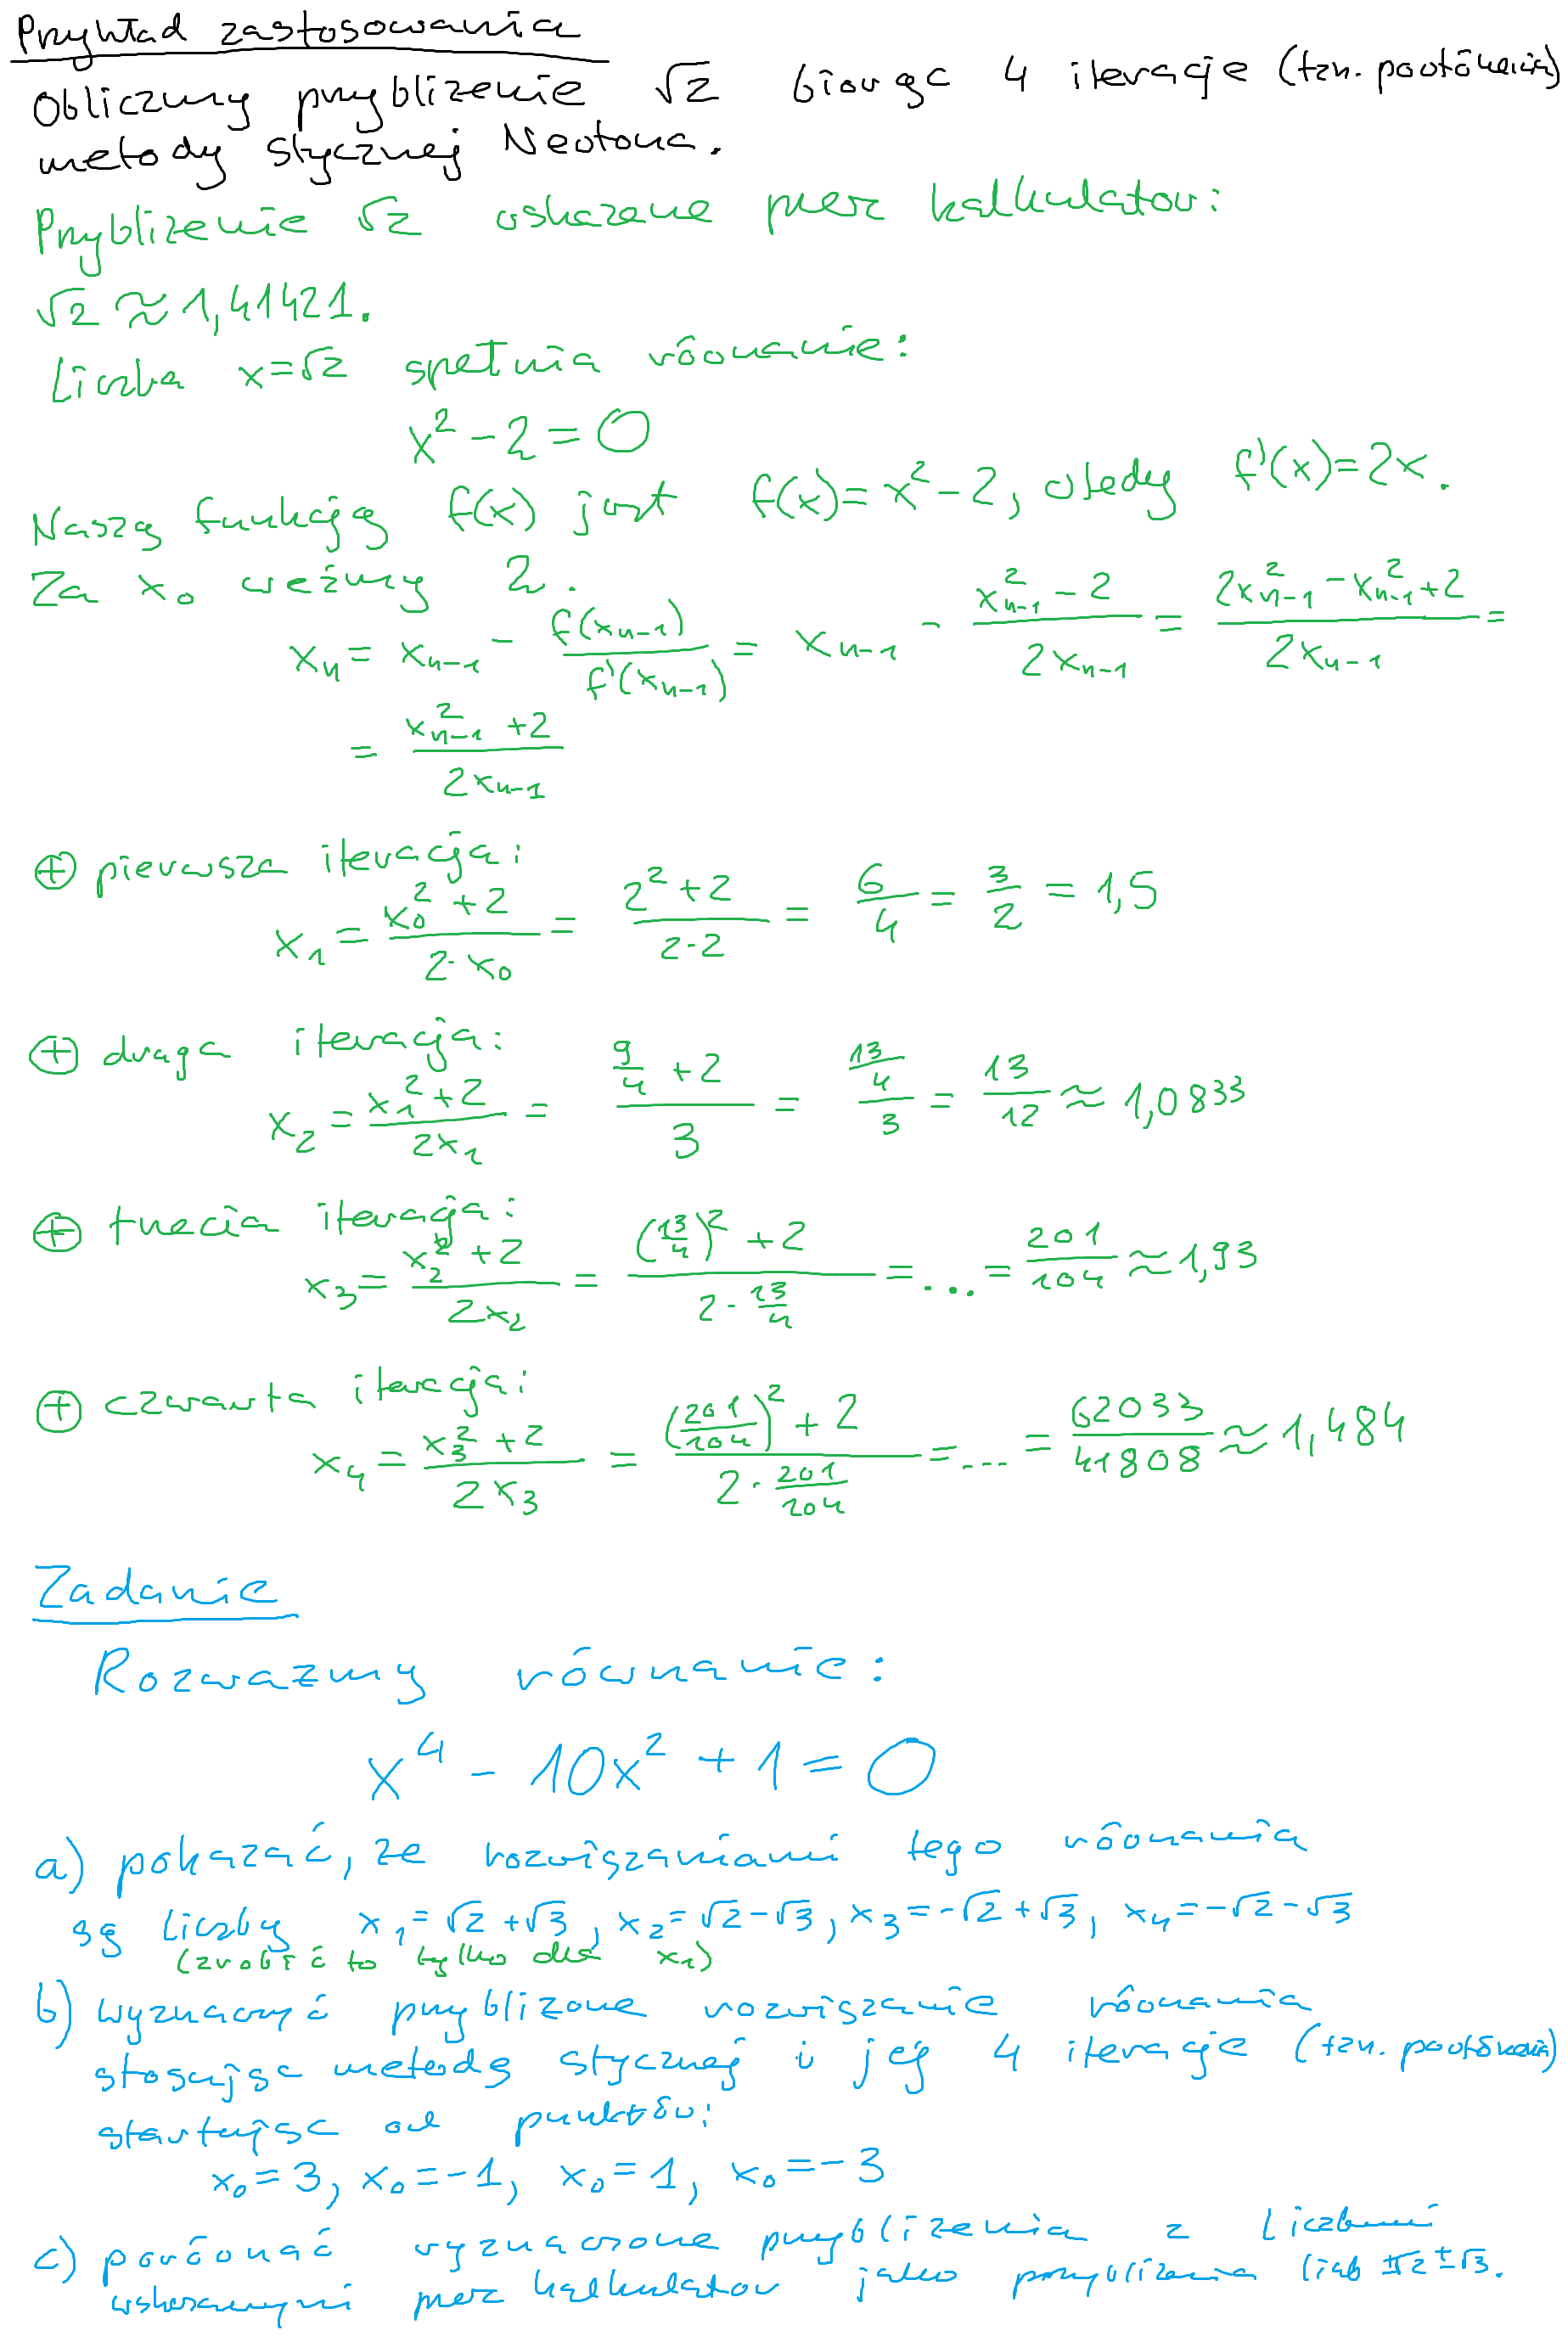 Przykład zastosowania
Obliczmy przybliżenie √2 biorąc 4 iteracje (tzn. powtórzenia)
metody stycznej Newtona.
Przybliżenie √2 wskazane przez kalkulator:
√2 ≈ 1,41421.
Liczba x=√2 spełnia równanie:
x² - 2 = 0
Naszą funkcją f(x) jest f(x) = x² - 2, wtedy f'(x) = 2x.
Za x₀ weźmy 2.
xₙ = xₙ₋₁ - f(xₙ₋₁)/f'(xₙ₋₁) = xₙ₋₁ - (xₙ₋₁² - 2)/(2xₙ₋₁) = (2xₙ₋₁² - xₙ₋₁² + 2)/(2xₙ₋₁) =
= (xₙ₋₁² + 2)/(2xₙ₋₁)
⊕ pierwsza iteracja:
x₁ = (x₀² + 2)/(2·x₀) = (2² + 2)/(2·2) = 6/4 = 3/2 = 1,5
⊕ druga iteracja:
x₂ = (x₁² + 2)/(2x₁) = (9/4 + 2)/3 = (13/4)/3 = 13/12 ≈ 1,0833
⊕ trzecia iteracja:
x₃ = (x₂² + 2)/(2x₂) = ((13/4)² + 2)/(2·13/4) = ... = 201/104 ≈ 1,93
⊕ czwarta iteracja:
x₄ = (x₃² + 2)/(2x₃) = ((201/104)² + 2)/(2·201/104) = ... = 62033/41808 ≈ 1,484
Zadanie
Rozważmy równanie:
x⁴ - 10x² + 1 = 0
a) pokazać, że rozwiązaniami tego równania
są liczby x₁ = √2 + √3, x₂ = √2 - √3, x₃ = -√2 + √3, x₄ = -√2 - √3
(zrobić to tylko dla x₁)
b) wyznaczyć przybliżone rozwiązanie równania
stosując metodę stycznej i jej 4 iteracje (tzn. powtórzenia)
startując od punktów:
x₀ = 3, x₀ = -1, x₀ = 1, x₀ = -3
c) porównać wyznaczone przybliżenia z liczbami
wskazanymi przez kalkulator jako przybliżenia liczb ±√2 ± √3.